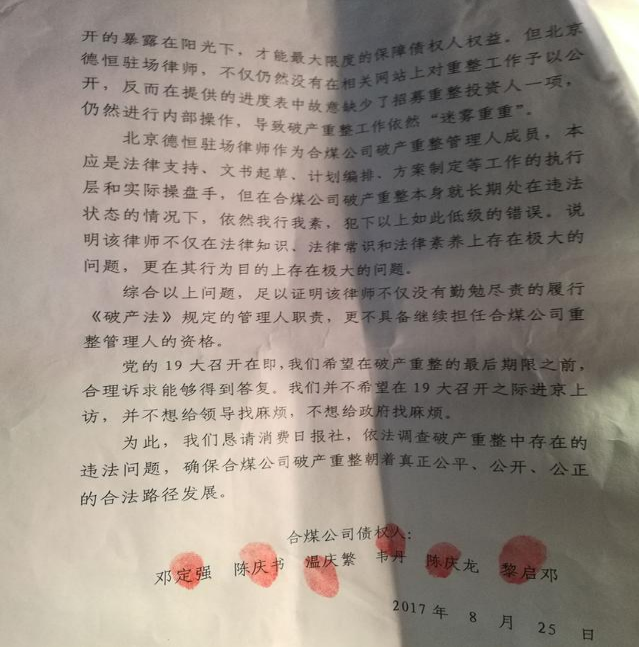 开的暴露在阳光下，才能最大限度的保障债权人权益。但北京
德恒驻场律师，不仅仍然没有在相关网站上对重整工作予以公
开，反而在提供的进度表中故意缺少了招募重整投资人一项，
仍然进行内部操作，导致破产重整工作依然“迷雾重重”。
北京德恒驻场律师作为合煤公司破产重整管理人成员，本
应是法律支持、文书起草、计划编排、方案制定等工作的执行
层和实际操盘手，但在合煤公司破产重整本身就长期处在违法
状态的情况下，依然我行我素，犯下以上如此低级的错误。说
明该律师不仅在法律知识、法律常识和法律素养上存在极大的
问题，更在其行为目的上存在极大的问题。
综合以上问题，足以证明该律师不仅没有勤勉尽责的履行
《破产法》规定的管理人职责，更不具备继续担任合煤公司重
整管理人的资格。
党的19大召开在即，我们希望在破产重整的最后期限之前，
合理诉求能够得到答复。我们并不希望在19大召开之际进京上
访，并不想给领导找麻烦，不想给政府找麻烦。
为此，我们恳请消费日报社，依法调查破产重整中存在的
违法问题，确保合煤公司破产重整朝着真正公平、公开、公正
的合法路径发展。
合煤公司债权人：
邓定强 陈庆书 温庆繁 韦丹 陈庆龙 黎启邓
2017年 8 月 25 日